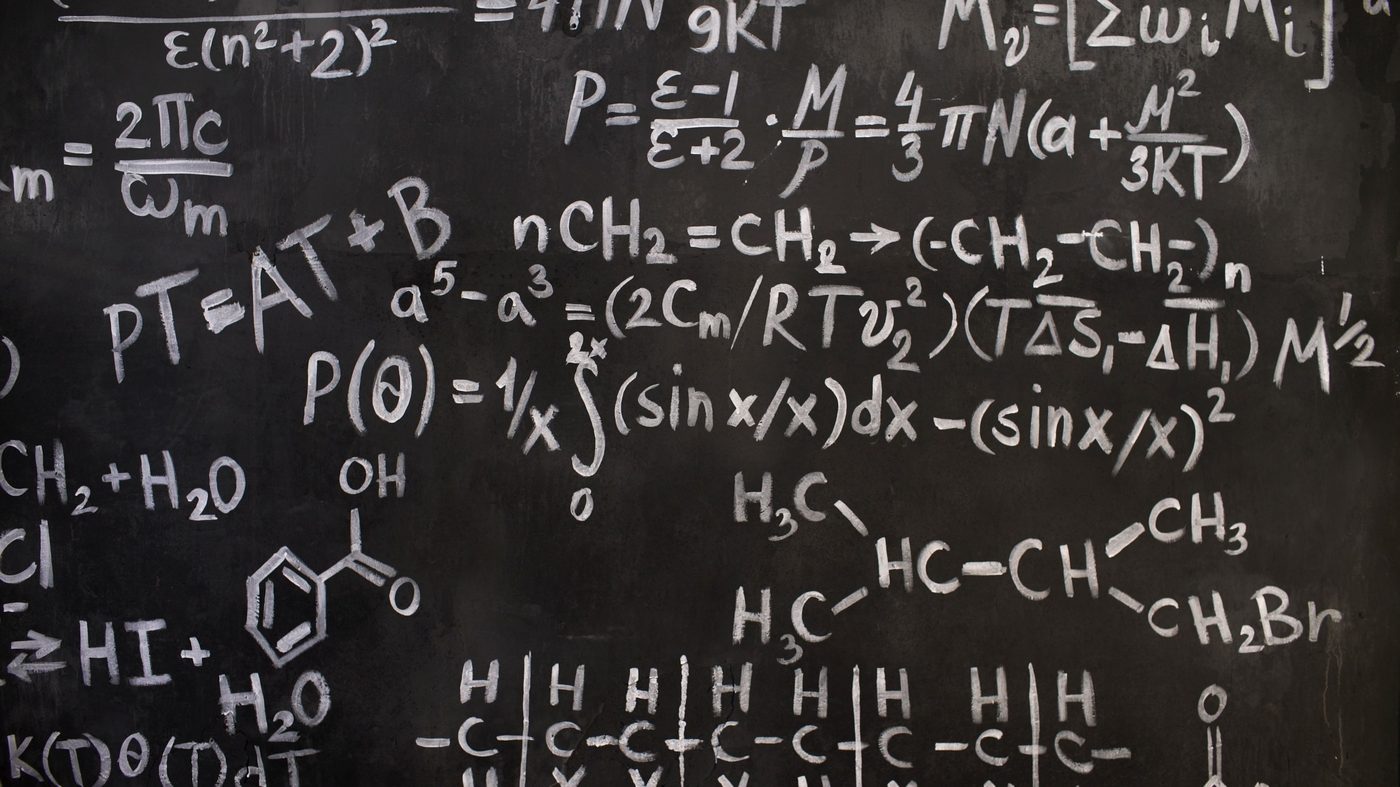 ε(n²+2)² = 4πN 9KT
M_v=[Σω_i M_i]
P=ε-1/ε+2 · M/P = 4/3 πN(a + M²/3KT)
m = 2πc/ω_m
PT=AT+B
nCH₂=CH₂→(-CH₂-CH₂-)n
a⁵-a³=(2C_m/RTv₂²)(TΔS₁-ΔH₁) M^1/2
P(θ)=1/x ∫₀^2x (sin x/x)dx-(sinx/x)²
)
CH₂+H₂O
Cl
-
⇌HI+
H₂O
OH
O
H₃C CH₃
HC-CH
H₃C CH₂Br
K(T)θ(T)dT
H H H H H H H H
-C-C-C-C-C-C-C-C-
H X X H H X X H
O